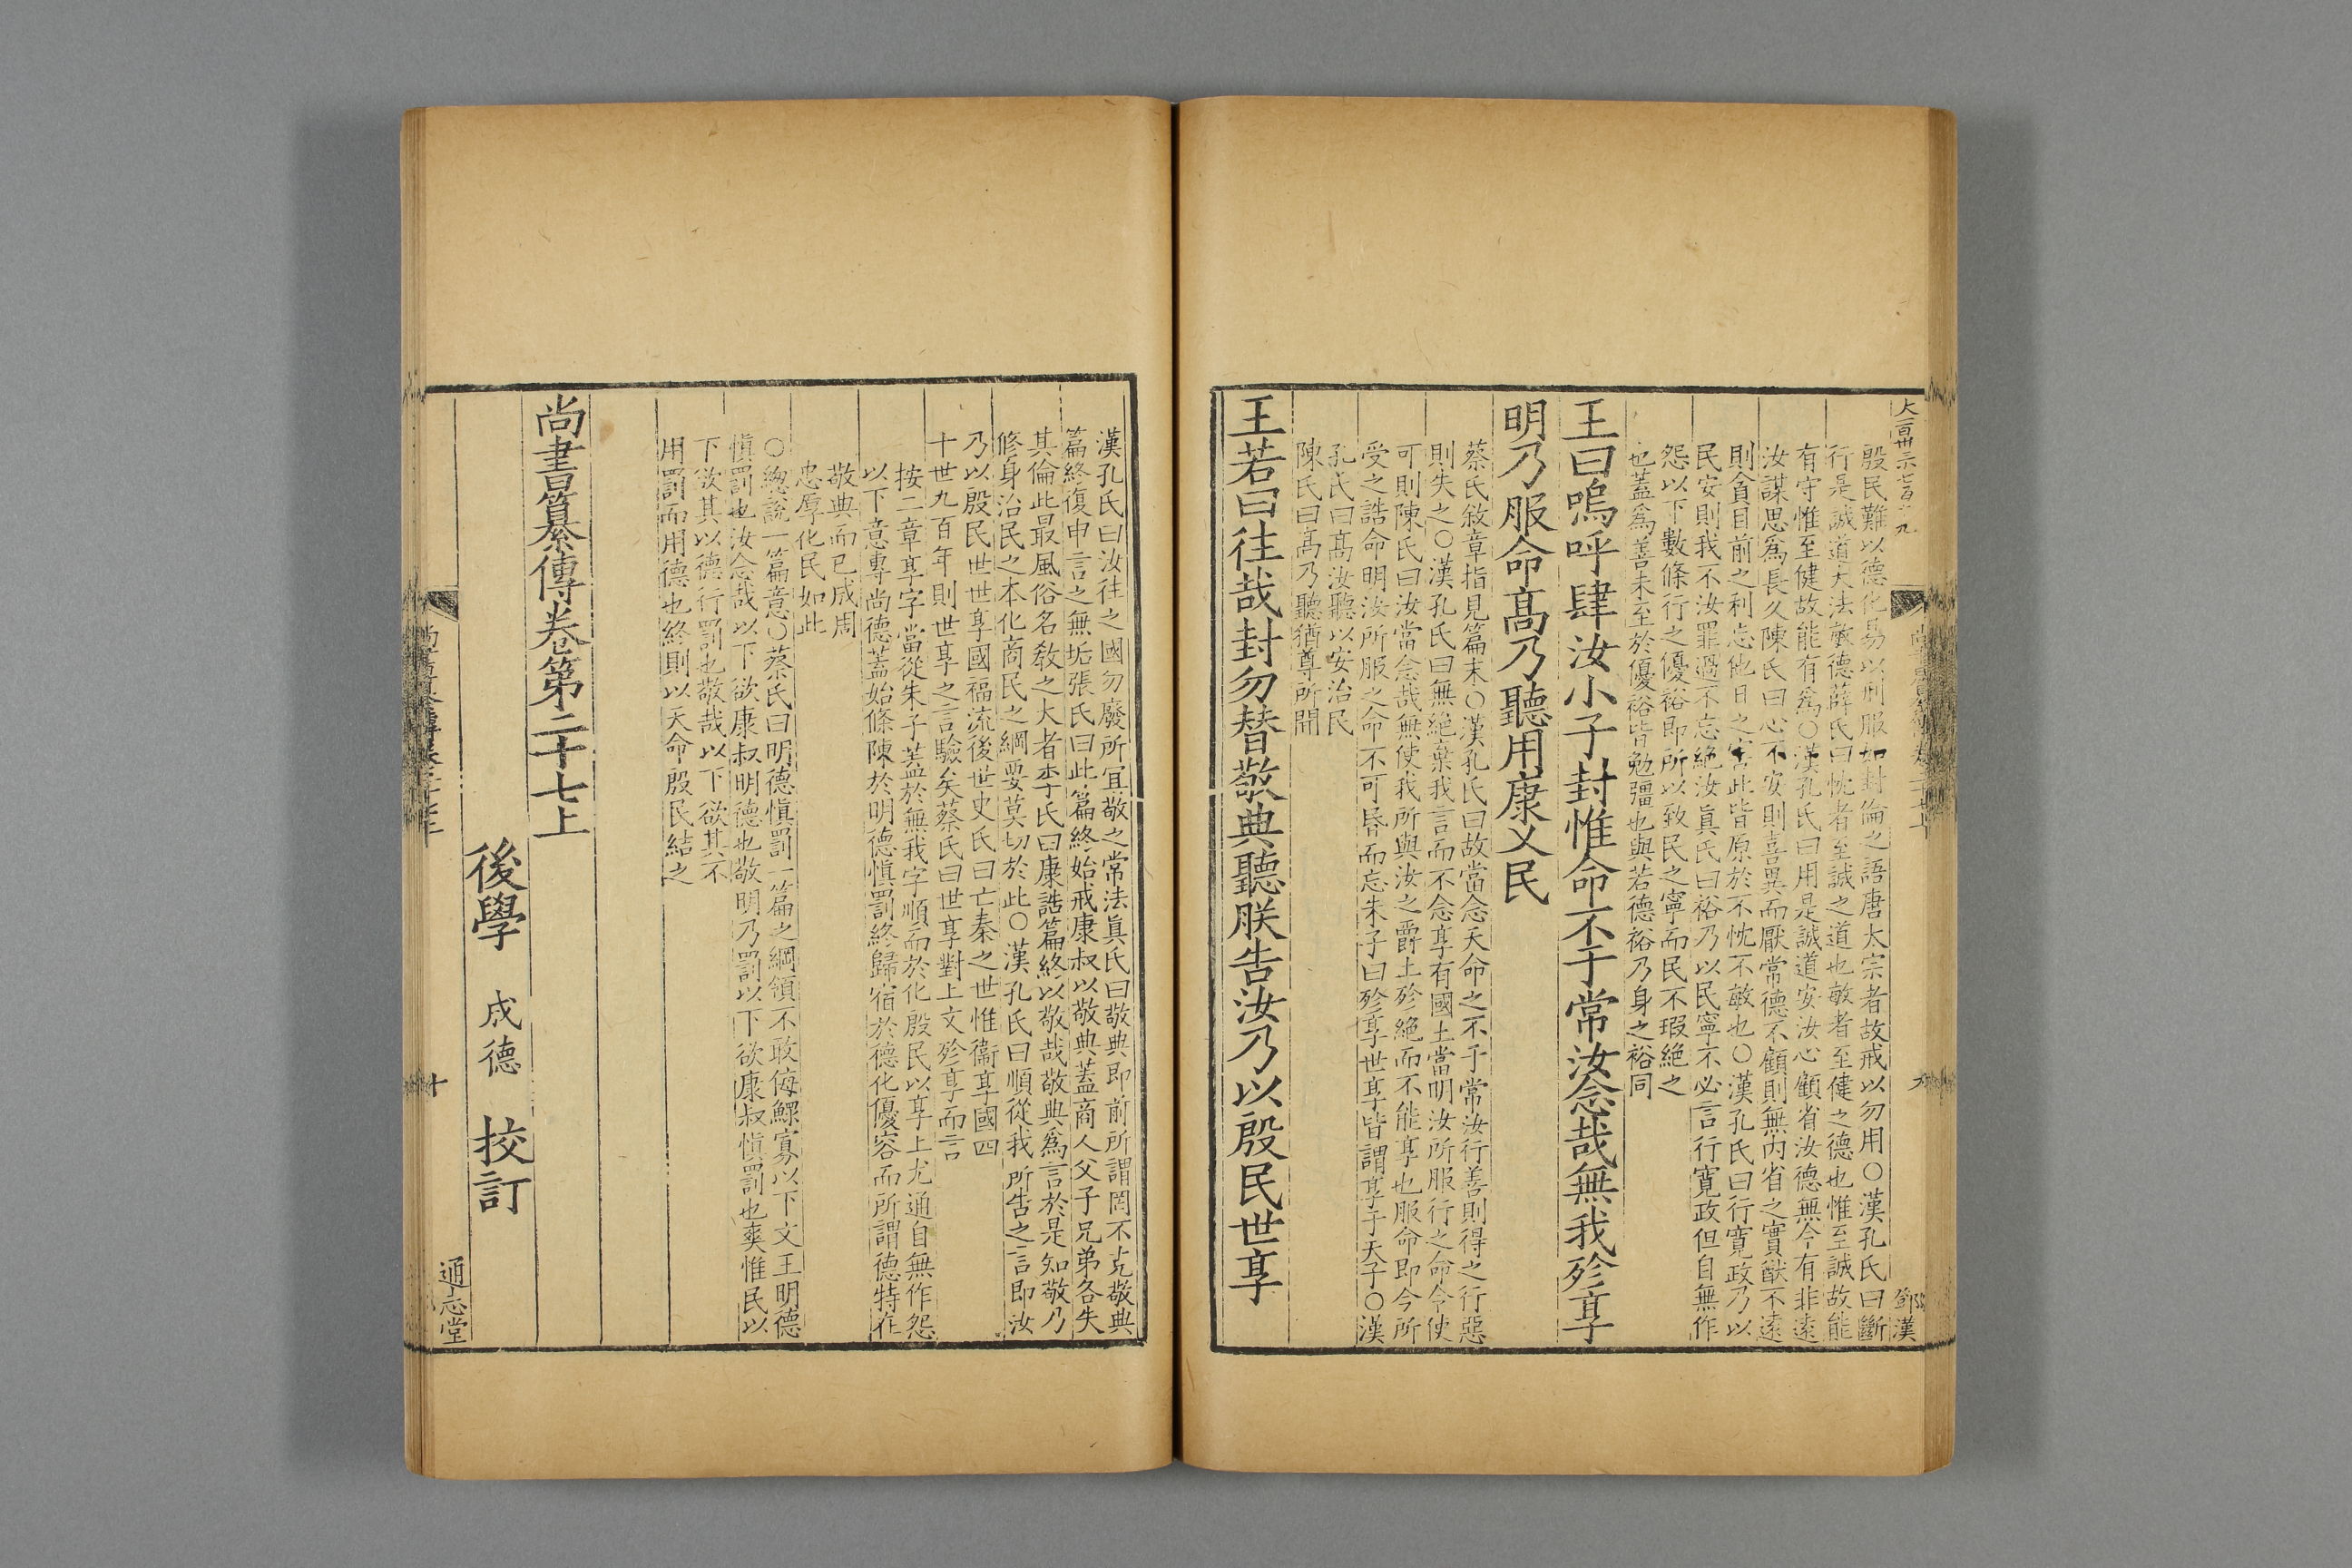 殷民難以德化易以刑服如封倫之語唐太宗者故戒以勿用○漢孔氏曰斷
行是誠道大法敏德薛氏曰忱者至誠之道也敏者至健之德也惟至誠故能
有守惟至健故能有為○漢孔氏曰用是誠道安汝心顧省汝德無令有非遠
汝謀思為長久陳氏曰心不安則喜異而厭常德不顧則無內省之實猷不遠
則貪目前之利忘他日之害此皆原於不忱不敏也○漢孔氏曰行寬政乃以
民安則我不汝罪過不忘絕汝真氏曰裕乃以民寧不必言行寬政但自無作
怨以下數條行之優裕即所以致民之寧而民不瑕絕之
也蓋為善未至於優裕皆勉彊也與若德裕乃身之裕同
王曰嗚呼肆汝小子封惟命不于常汝念哉無我殄享
明乃服命高乃聽用康乂民
蔡氏敘章指見篇末○漢孔氏曰故當念天命之不于常汝行善則得之行惡
則失之○漢孔氏曰無絕棄我言而不念享有國土當明汝所服行之命令使
可則陳氏曰汝當念哉無使我所與汝之爵土殄絕而不能享也服命即今所
受之誥命明汝所服之命不可昏而忘朱子曰殄享世享皆謂享于天子○漢
孔氏曰高汝聽以安治民
陳氏曰高乃聽猶尊所聞
王若曰往哉封勿替敬典聽朕告汝乃以殷民世享
漢孔氏曰汝往之國勿廢所宜敬之常法真氏曰敬典即前所謂罔不克敬典
篇終復申言之無垢張氏曰此篇終始戒康叔以敬典蓋商人父子兄弟各失
其倫此最風俗名教之大者李氏曰康誥篇終以敬哉敬典為言於是知敬乃
修身治民之本化商民之綱要莫切於此○漢孔氏曰順從我所告之言即汝
乃以殷民世世享國福流後世史氏曰亡秦之世惟衞享國四
十世九百年則世享之言驗矣蔡氏曰世享對上文殄享而言
按二章享字當從朱子蓋於無我字順而於化殷民以享上尤通自無作怨
以下意專尚德蓋始條陳於明德慎罰終歸宿於德化優容而所謂德特在
敬典而已成周
忠厚化民如此
○總說一篇意○蔡氏曰明德慎罰一篇之綱領不敢侮鰥寡以下文王明德
慎罰也汝念哉以下欲康叔明德也敬明乃罰以下欲康叔慎罰也爽惟民以
下欲其以德行罰也敬哉以下欲其不
用罰而用德也終則以天命殷民結之
尚書纂傳卷第二十七上
後學 成德 挍訂
通志堂